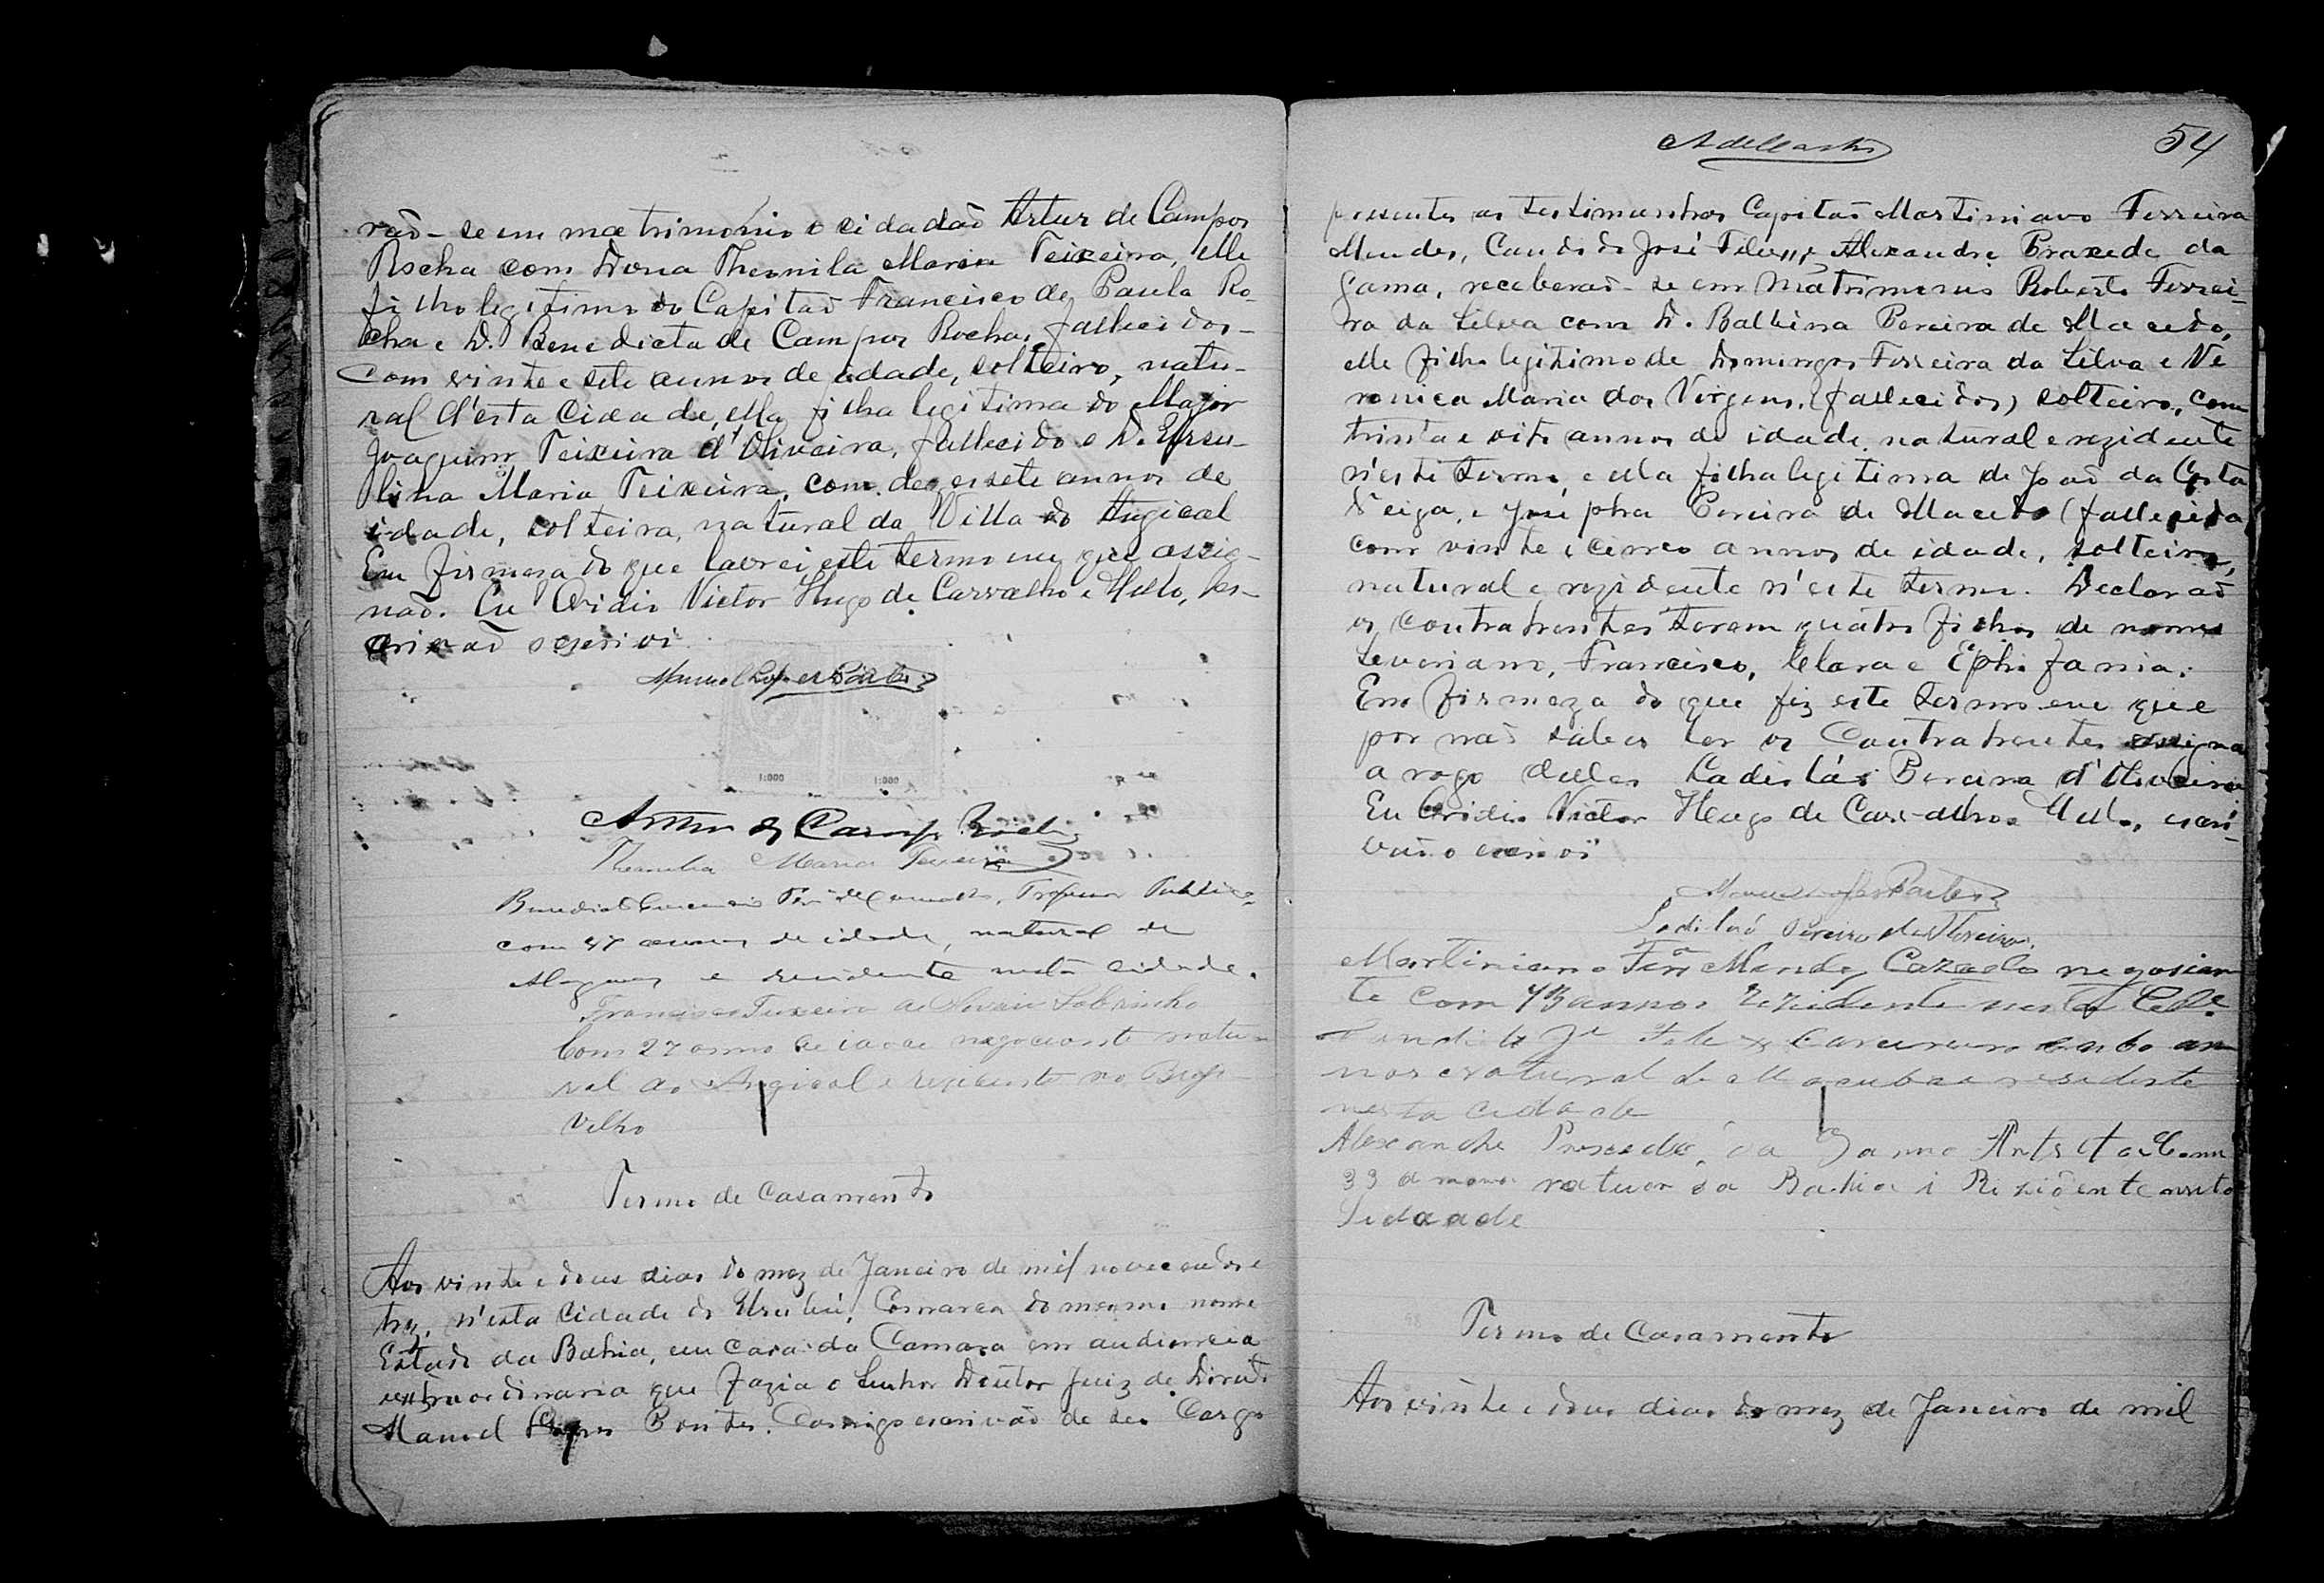 rão-se em matrimonio o cidadão Artur de Campos
Rocha com Dona Themila Maria Teixeira, elle
filho legitimo do Capitão Francisco de Paula Ro-
cha e D. Benedicta de Campos Rocha, fallecidos-
com vinte e sete annos de edade, solteiro, natu-
ral d'esta Cidade, ella filha legitima do Major
Joaquim Teixeira d'Oliveira, fallecido e D. Ursu-
lina Maria Teixeira, com dezesete annos de
idade, solteira, natural da Villa do Angical
Em firmeza do que lavrei este termo em que assig-
não. Eu Ovidio Victor Hugo de Carvalho e Mello, es-
crivão escrivi
Manoel Lopes Pontes
1:000 1:000
Artur de Campos Rocha
Themila Maria Teixeira
Professor Publico
com 47 annos de idade, natural de
Alagoas e residente nesta cidade.
Francisco Teixeira de Oliveira Sobrinho
Com 27 annos de idade negociante natu-
ral do Angical e residente no Brejo
Velho
Termo de Casamento
Aos vinte e dous dias do mez de Janeiro de mil novecentos e
trez, n'esta Cidade do Urubú, Comarca do mesmo nome
Estado da Bahia, em casa da Camara em audiencia
extraordinaria que fazia o Senhor Doutor Juiz de Direito
Manoel Lopes Pontes. Comigo escrivão de seu Cargo
54
presentes as testimunhas Capitão Martiniano Ferreira
Mendes, Candido José Alexandre Praxede da
Gama, receberão-se em Matrimonio Roberto Ferrei-
ra da Silva com D. Balbina Pereira de Macedo,
elle filho legitimo de Domingos Ferreira da Silva e Ve
ronica Maria das Virgens, (fallecidos) solteiro, com
trinta e oito annos de idade natural e rezidente
n'este termo, e ella filha legitima de João da Costa
Veiga, e Josepha Pereira de Macedo (fallecida
com vinte e cinco annos de idade, solteira,
natural e rezidente n'este termo. Declarão
os contrahentes terem quatro filhos de nomes
Severiano, Francisco, Clara e Ephifania.
Em firmeza do que fiz este termo em que
por não saber ler os Contrahentes assigna
a rogo delles Ladisláo Pereira d'Oliveira
Eu Ovidio Victor Hugo de Carvalho e Mello, escri-
vão o escrivi
Manoel Lopes Pontes
Ladisláo Pereira de Oliveira.
Martiniano Ferª Mendes Cazado negocian
te com 43 annos Rezidente nesta Cidᵉ
Candido Jᵉ 60 an
nos natural de Macaubas residente
nesta cidade
Alexandre Praxede da Gama Artista Com
33 annos natural da Bahia i Rezidente nesta
Sidaade
Termo de Casamento
Aos vinte e dous dias do mez de Janeiro de mil